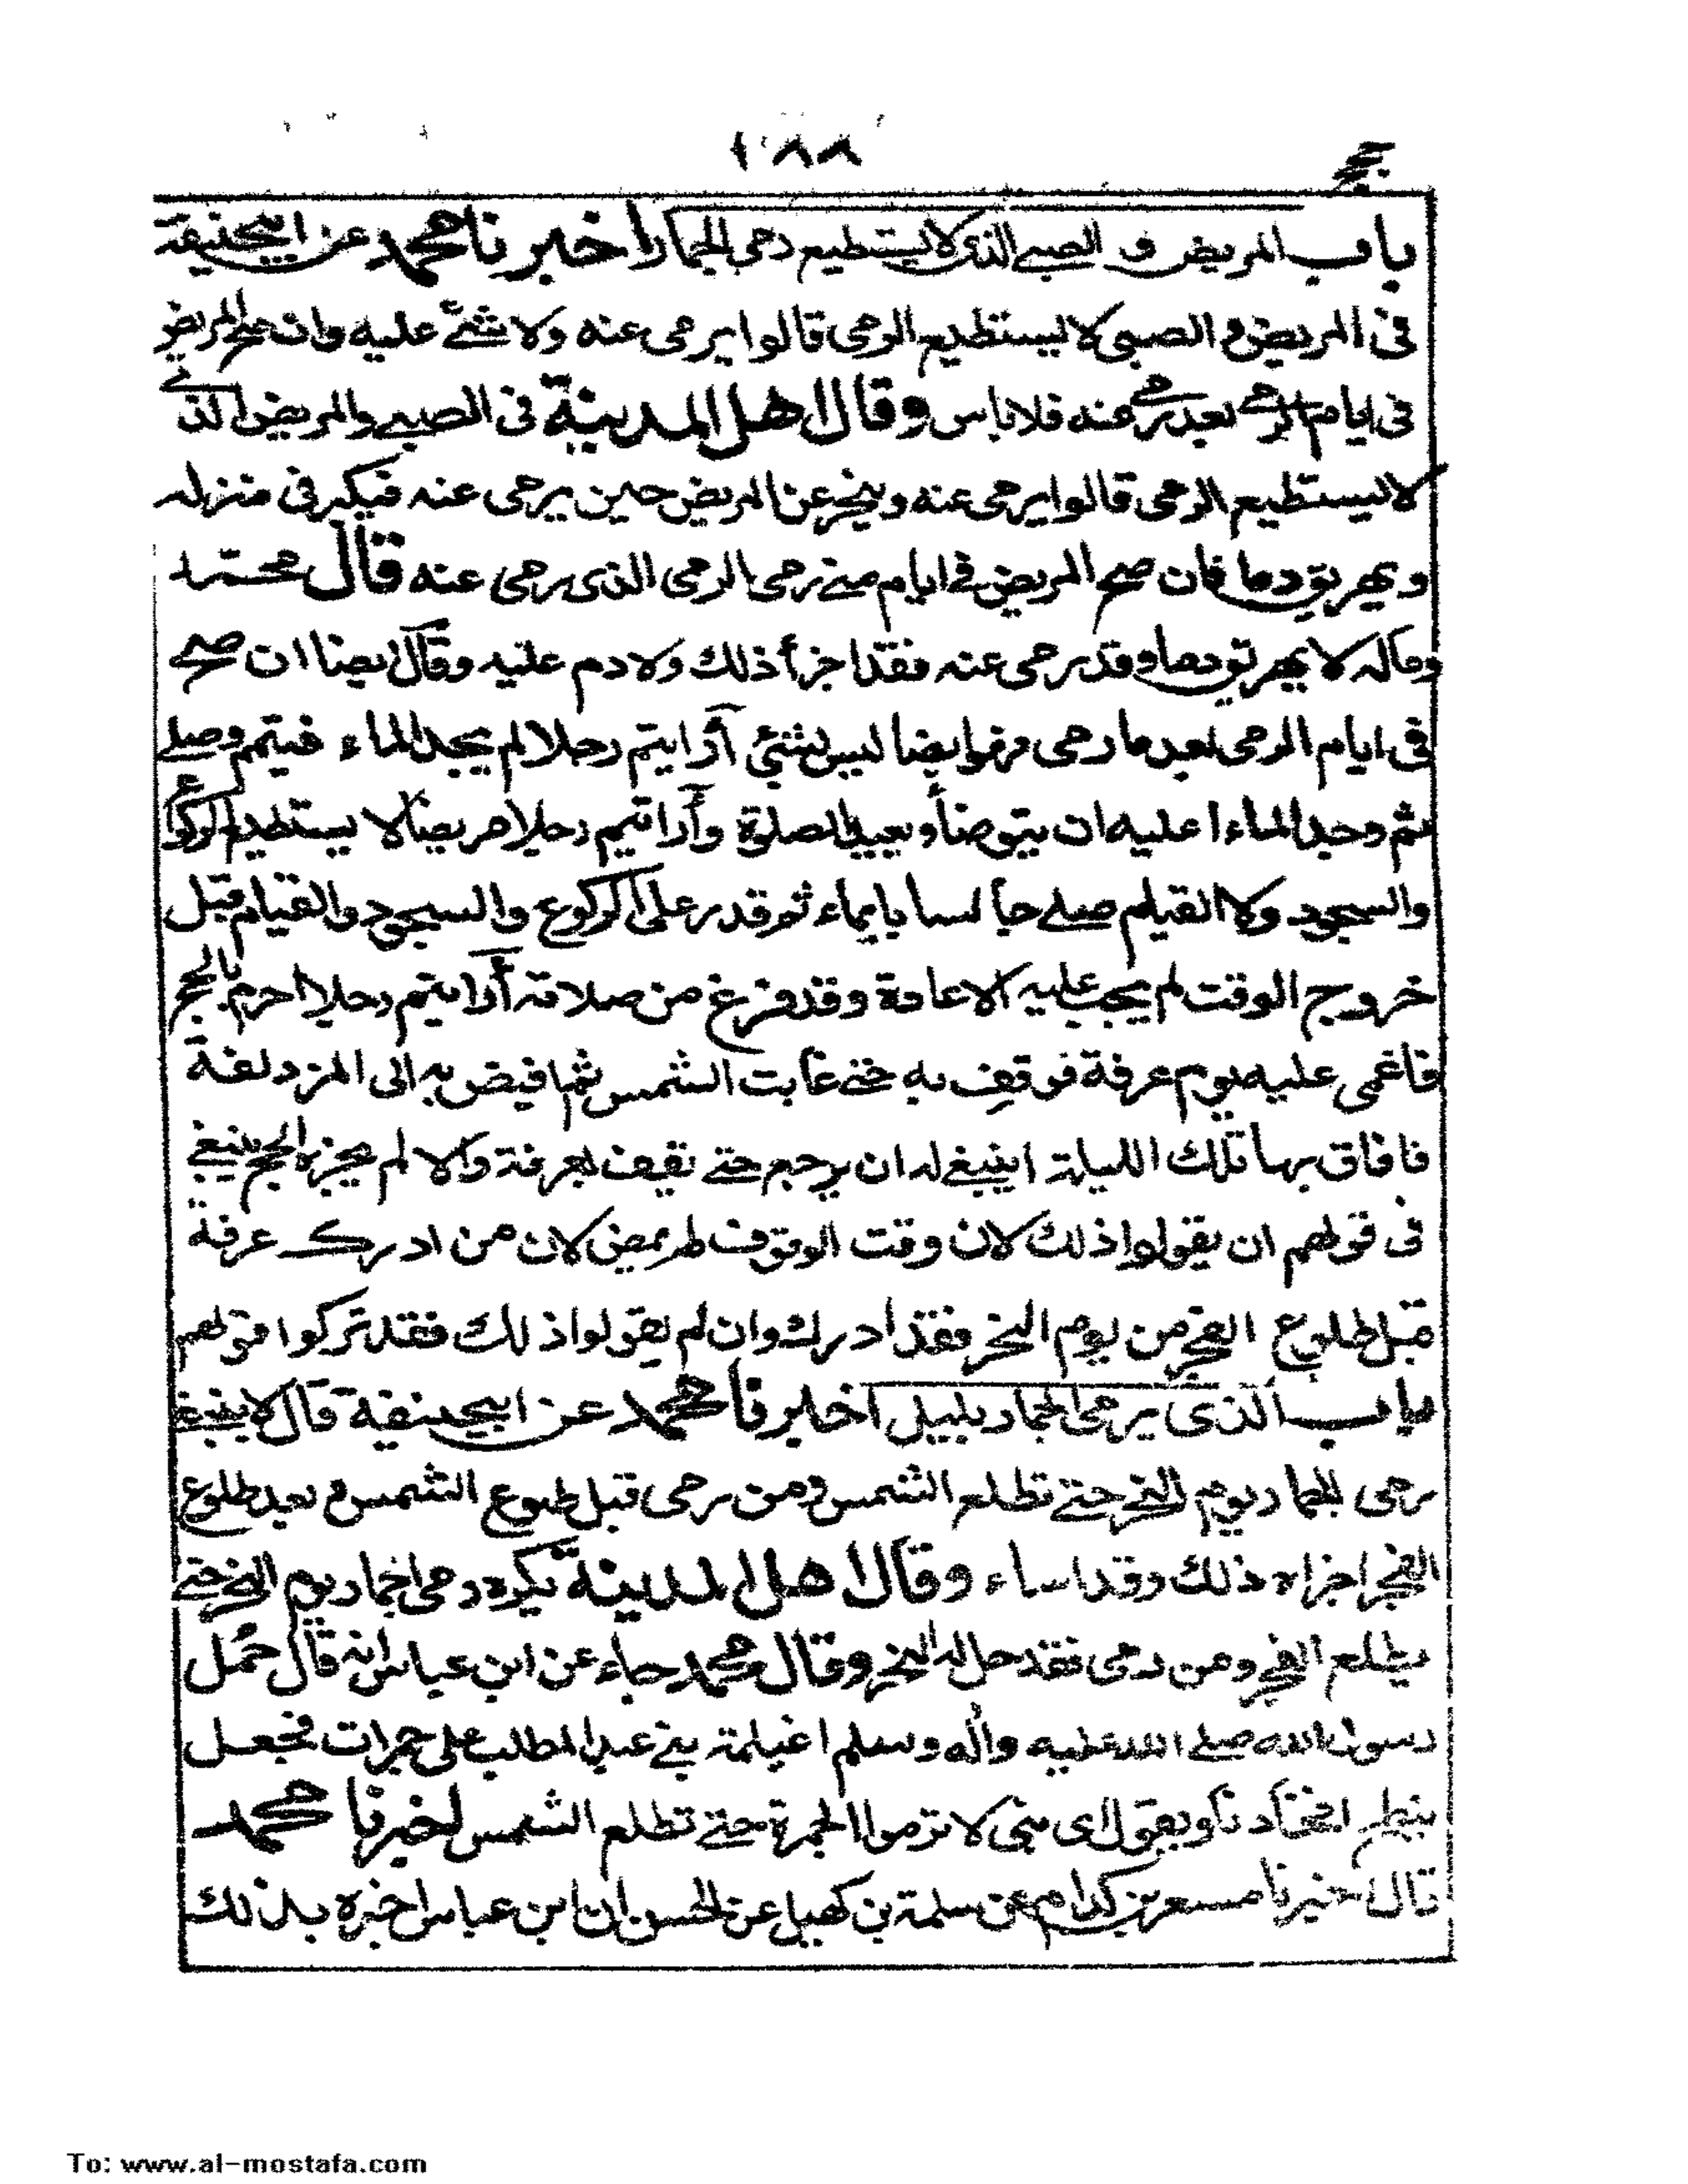 ١٨٨
حج
باب المريض و الصبي الذي لا يستطيع رمي الجمار اخبرنا محمد عن ابيحنيفة
في المريض و الصبي لا يستطيع الرمي قالوا يرمى عنه ولا شئ عليه وان صح المريض
في ايام الرمي بعد رمي عنه فلا باس وقال اهل المدينة في الصبي والمريض الذي
لا يستطيع الرمي قالوا يرمى عنه ويتحر عن المريض حين يرمى عنه فيكبر في منزله
ويهريق دما فان صح المريض في ايام منى رمى الرمي الذي رمى عنه قال محمد
وماله لا يهريق دما وقد رمى عنه فقد اجزأ ذلك ولا دم عليه وقال ايضا ان صح
في ايام الرمي بعد ما رمى ايضا ليس بشئ أرايتم رجلا لم يجد الماء فيتمم وصلى
ثم وجد الماء اعليه ان يتوضأ ويعيد الصلوة وأرايتم رجلا مريضا لا يستطيع الركوع
والسجود ولا القيام صلى جالسا بايماء ثم قدر على الركوع والسجود والقيام قبل
خروج الوقت لم يجب عليه الاعادة وقد فرغ من صلاته أرايتم رجلا احرم بالحج
فاغمى عليه يوم عرفة فوقف به حتى غابت الشمس ثم افيض به الى المزدلفة
فافاق بها تلك الليلة اينبغي له ان يرجع حتى يقف بعرفة والا لم يجزه الحج ينبغي
في قولهم ان يقولوا ذلك لان وقت الوقوف لم يمض لان من ادرك عرفة
قبل طلوع الفجر من يوم النحر فقد ادرك وان لم يقولوا ذلك فقد تركوا قولهم
باب الذي يرمي الجمار بليل اخبرنا محمد عن ابيحنيفة قال لا ينبغي
رمى الجمار يوم النحر حتى تطلع الشمس ومن رمى قبل طلوع الشمس و بعد طلوع
الفجر اجزاه ذلك وقد اساء وقال اهل المدينة يكره رمي الجمار يوم النحر حتى
يطلع الفجر ومن رمى فقد حل له النحر وقال محمد جاء عن ابن عباس انه قال حمل
رسول الله صلى الله عليه واله وسلم اغيلمة بني عبد المطلب على حمرات فجعل
افخاذنا ويقول اي بني لا ترموا الجمرة حتى تطلع الشمس اخبرنا محمد
قال اخبرنا مسعر بن كدام عن سلمة بن كهيل عن الحسن ان ابن عباس اخبره بذلك
To: www.al-mostafa.com